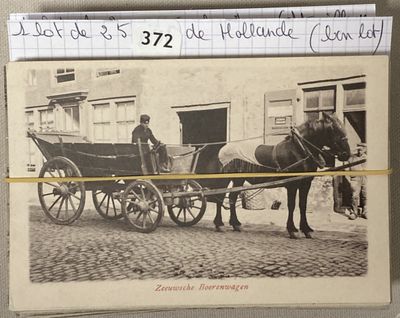 1 lot de 25 372 de Hollande (bon lot)
Zeeuwsche Boerenwagen